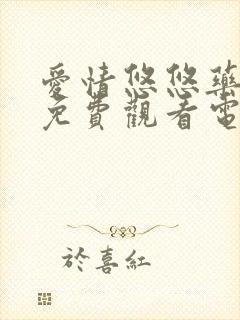 愛情悠悠藥
免費觀看電
於喜紅